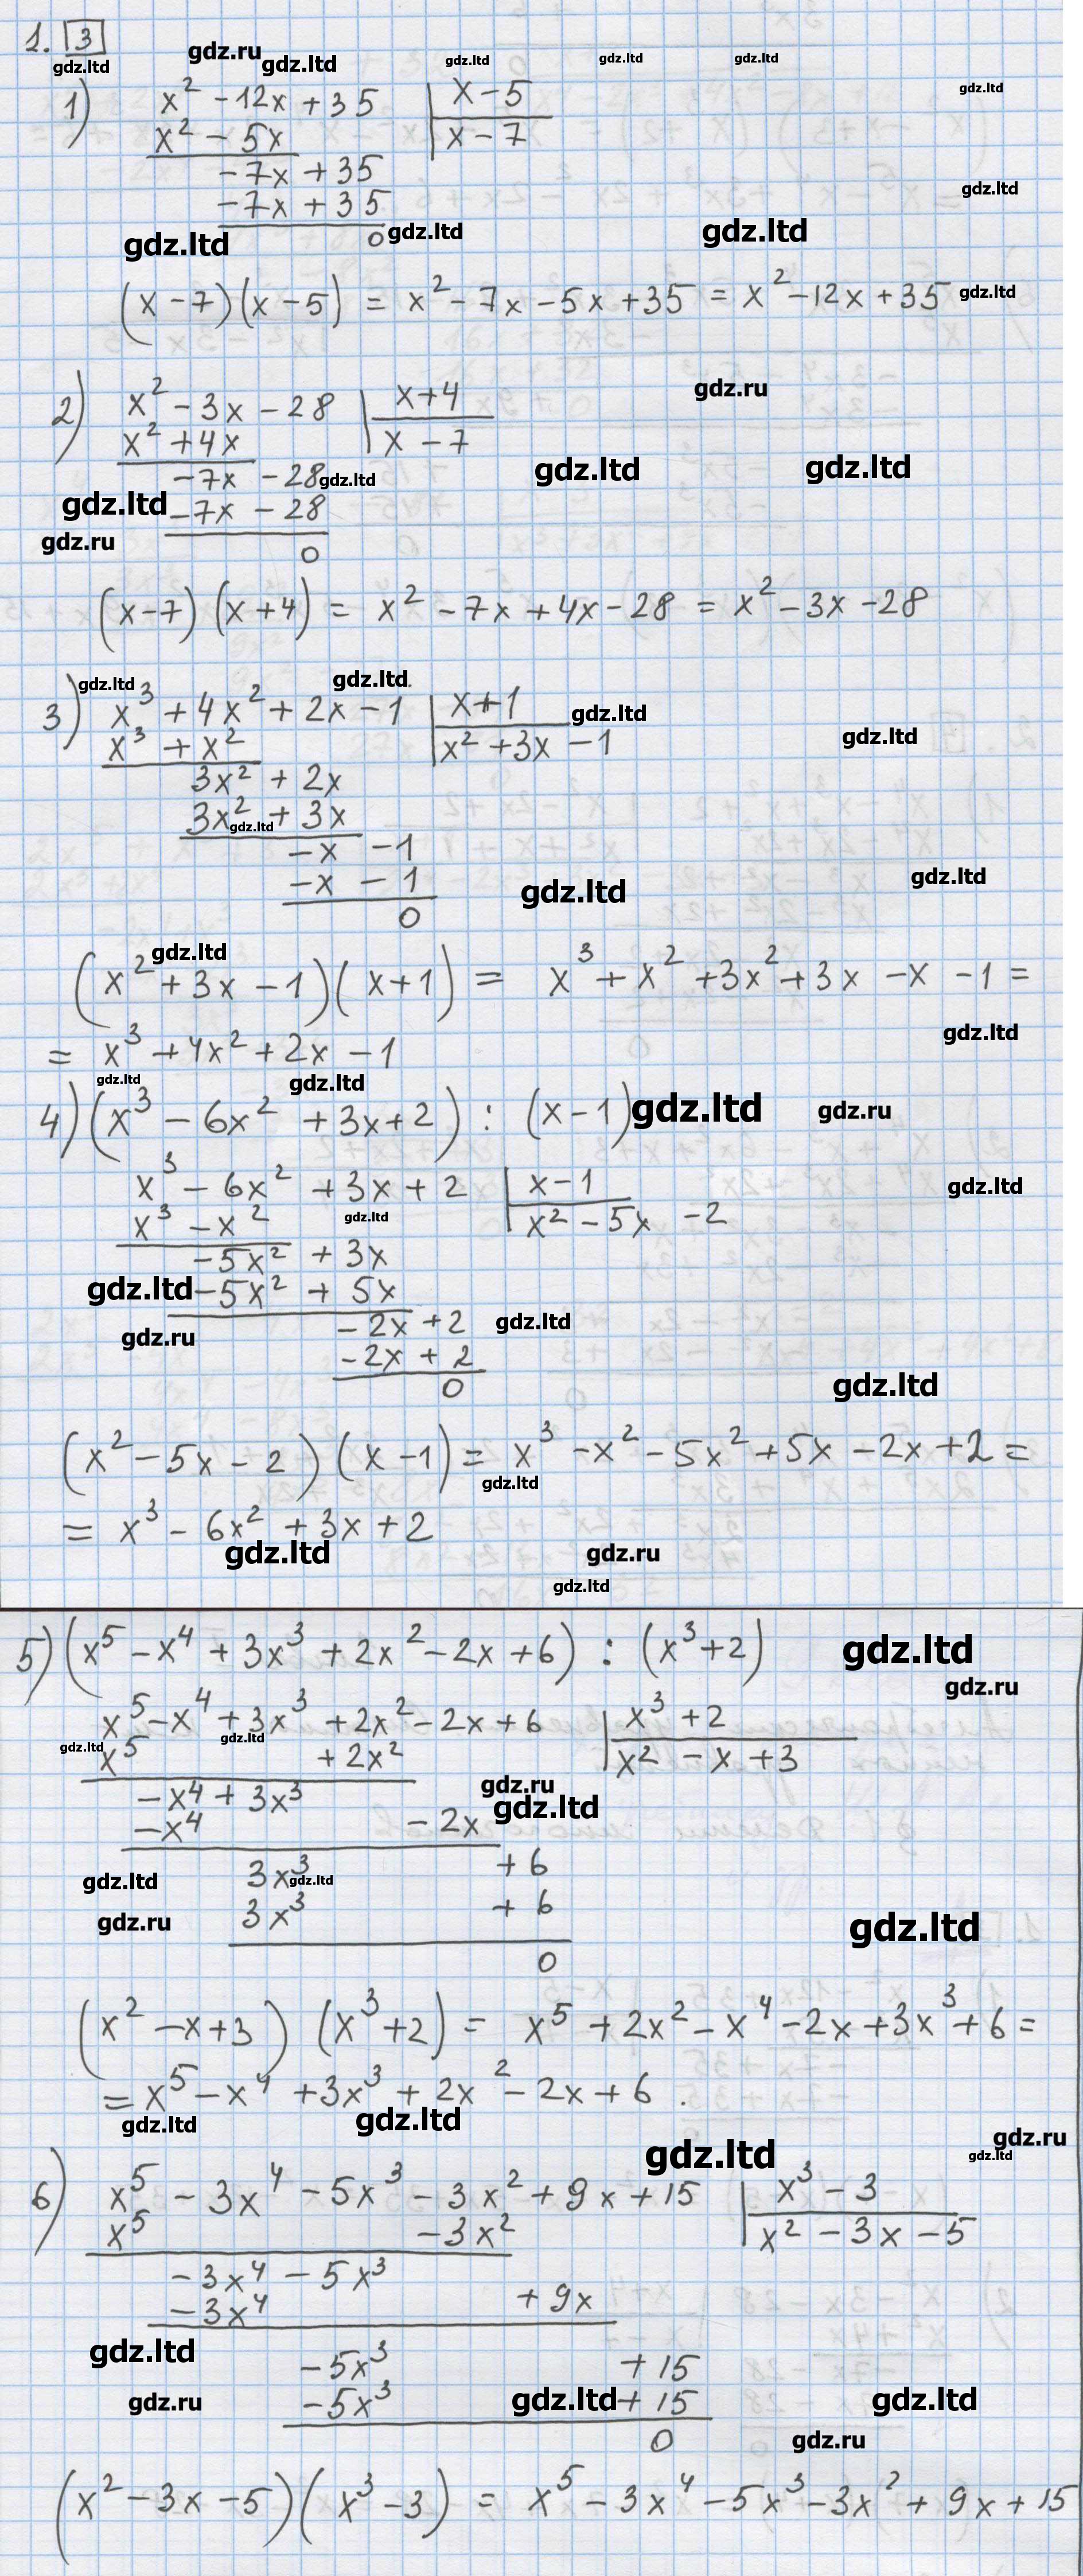 1. 3
gdz.ltd gdz.ru gdz.ltd gdz.ltd gdz.ltd gdz.ltd gdz.ltd
1) x² - 12x + 35 | x - 5
x² - 5x | x - 7
-7x + 35
gdz.ltd
-7x + 35
0
gdz.ltd gdz.ltd gdz.ltd
(x - 7)(x - 5) = x² - 7x - 5x + 35 = x² - 12x + 35 gdz.ltd
gdz.ru
2) x² - 3x - 28 | x + 4
x² + 4x | x - 7
-7x - 28 gdz.ltd gdz.ltd gdz.ltd
gdz.ltd -7x - 28
gdz.ru 0
(x - 7)(x + 4) = x² - 7x + 4x - 28 = x² - 3x - 28
gdz.ltd gdz.ltd
3) x³ + 4x² + 2x - 1 | x + 1 gdz.ltd
x³ + x² | x² + 3x - 1 gdz.ltd
3x² + 2x
3x² + 3x
gdz.ltd
-x - 1
-x - 1 gdz.ltd gdz.ltd
0
gdz.ltd
(x² + 3x - 1)(x + 1) = x³ + x² + 3x² + 3x - x - 1 =
gdz.ltd
= x³ + 4x² + 2x - 1
gdz.ltd gdz.ltd
4) (x³ - 6x² + 3x + 2) : (x - 1) gdz.ltd gdz.ru
x³ - 6x² + 3x + 2 | x - 1 gdz.ltd
x³ - x² gdz.ltd | x² - 5x - 2
-5x² + 3x
gdz.ltd -5x² + 5x
gdz.ru -2x + 2 gdz.ltd
-2x + 2
0 gdz.ltd
(x² - 5x - 2)(x - 1) = x³ - x² - 5x² + 5x - 2x + 2 =
gdz.ltd
= x³ - 6x² + 3x + 2
gdz.ltd gdz.ru
gdz.ltd
5) (x⁵ - x⁴ + 3x³ + 2x² - 2x + 6) : (x³ + 2) gdz.ltd
gdz.ru
x⁵ - x⁴ + 3x³ + 2x² - 2x + 6 | x³ + 2
gdz.ltd gdz.ltd
x⁵ + 2x² | x² - x + 3
gdz.ru
-x⁴ + 3x³ gdz.ltd
-x⁴ - 2x
gdz.ltd 3x³ gdz.ltd + 6
gdz.ru 3x³ + 6 gdz.ltd
0
(x² - x + 3)(x³ + 2) = x⁵ + 2x² - x⁴ - 2x + 3x³ + 6 =
= x⁵ - x⁴ + 3x³ + 2x² - 2x + 6.
gdz.ltd gdz.ltd gdz.ru
gdz.ltd gdz.ltd
6) x⁵ - 3x⁴ - 5x³ - 3x² + 9x + 15 | x³ - 3
x⁵ - 3x² | x² - 3x - 5
-3x⁴ - 5x³
-3x⁴ + 9x
gdz.ltd
-5x³ + 15
gdz.ru -5x³ gdz.ltd + 15 gdz.ltd
0 gdz.ru
(x² - 3x - 5)(x³ - 3) = x⁵ - 3x⁴ - 5x³ - 3x² + 9x + 15